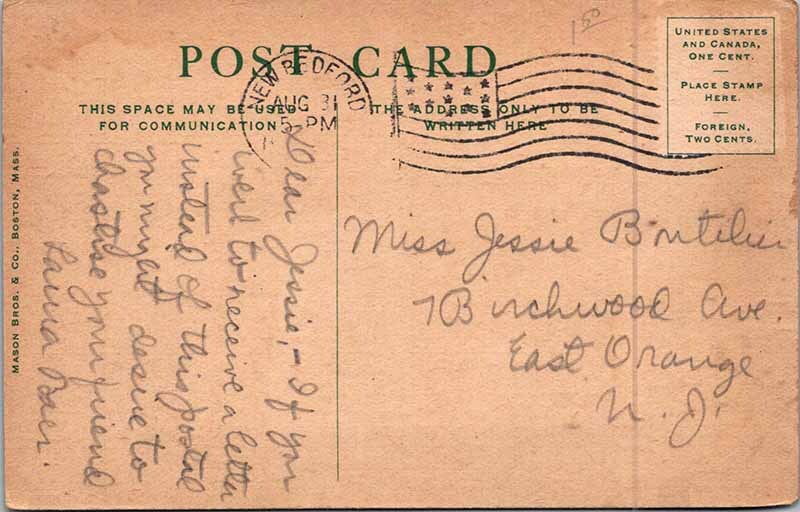 1.50
POST CARD
UNITED STATES
AND CANADA,
ONE CENT.
PLACE STAMP
HERE.
FOREIGN,
TWO CENTS.
NEW BEDFORD
AUG 31
5-PM
THIS SPACE MAY BE USED
FOR COMMUNICATION
THE ADDRESS ONLY TO BE
WRITTEN HERE
Dear Jessie,- If you
were to receive a letter
instead of this postal
you might desire to
chastise your friend
Miss Jessie
7 Birchwood Ave.
East Orange
N. J.
MASON BROS. & CO., BOSTON, MASS.